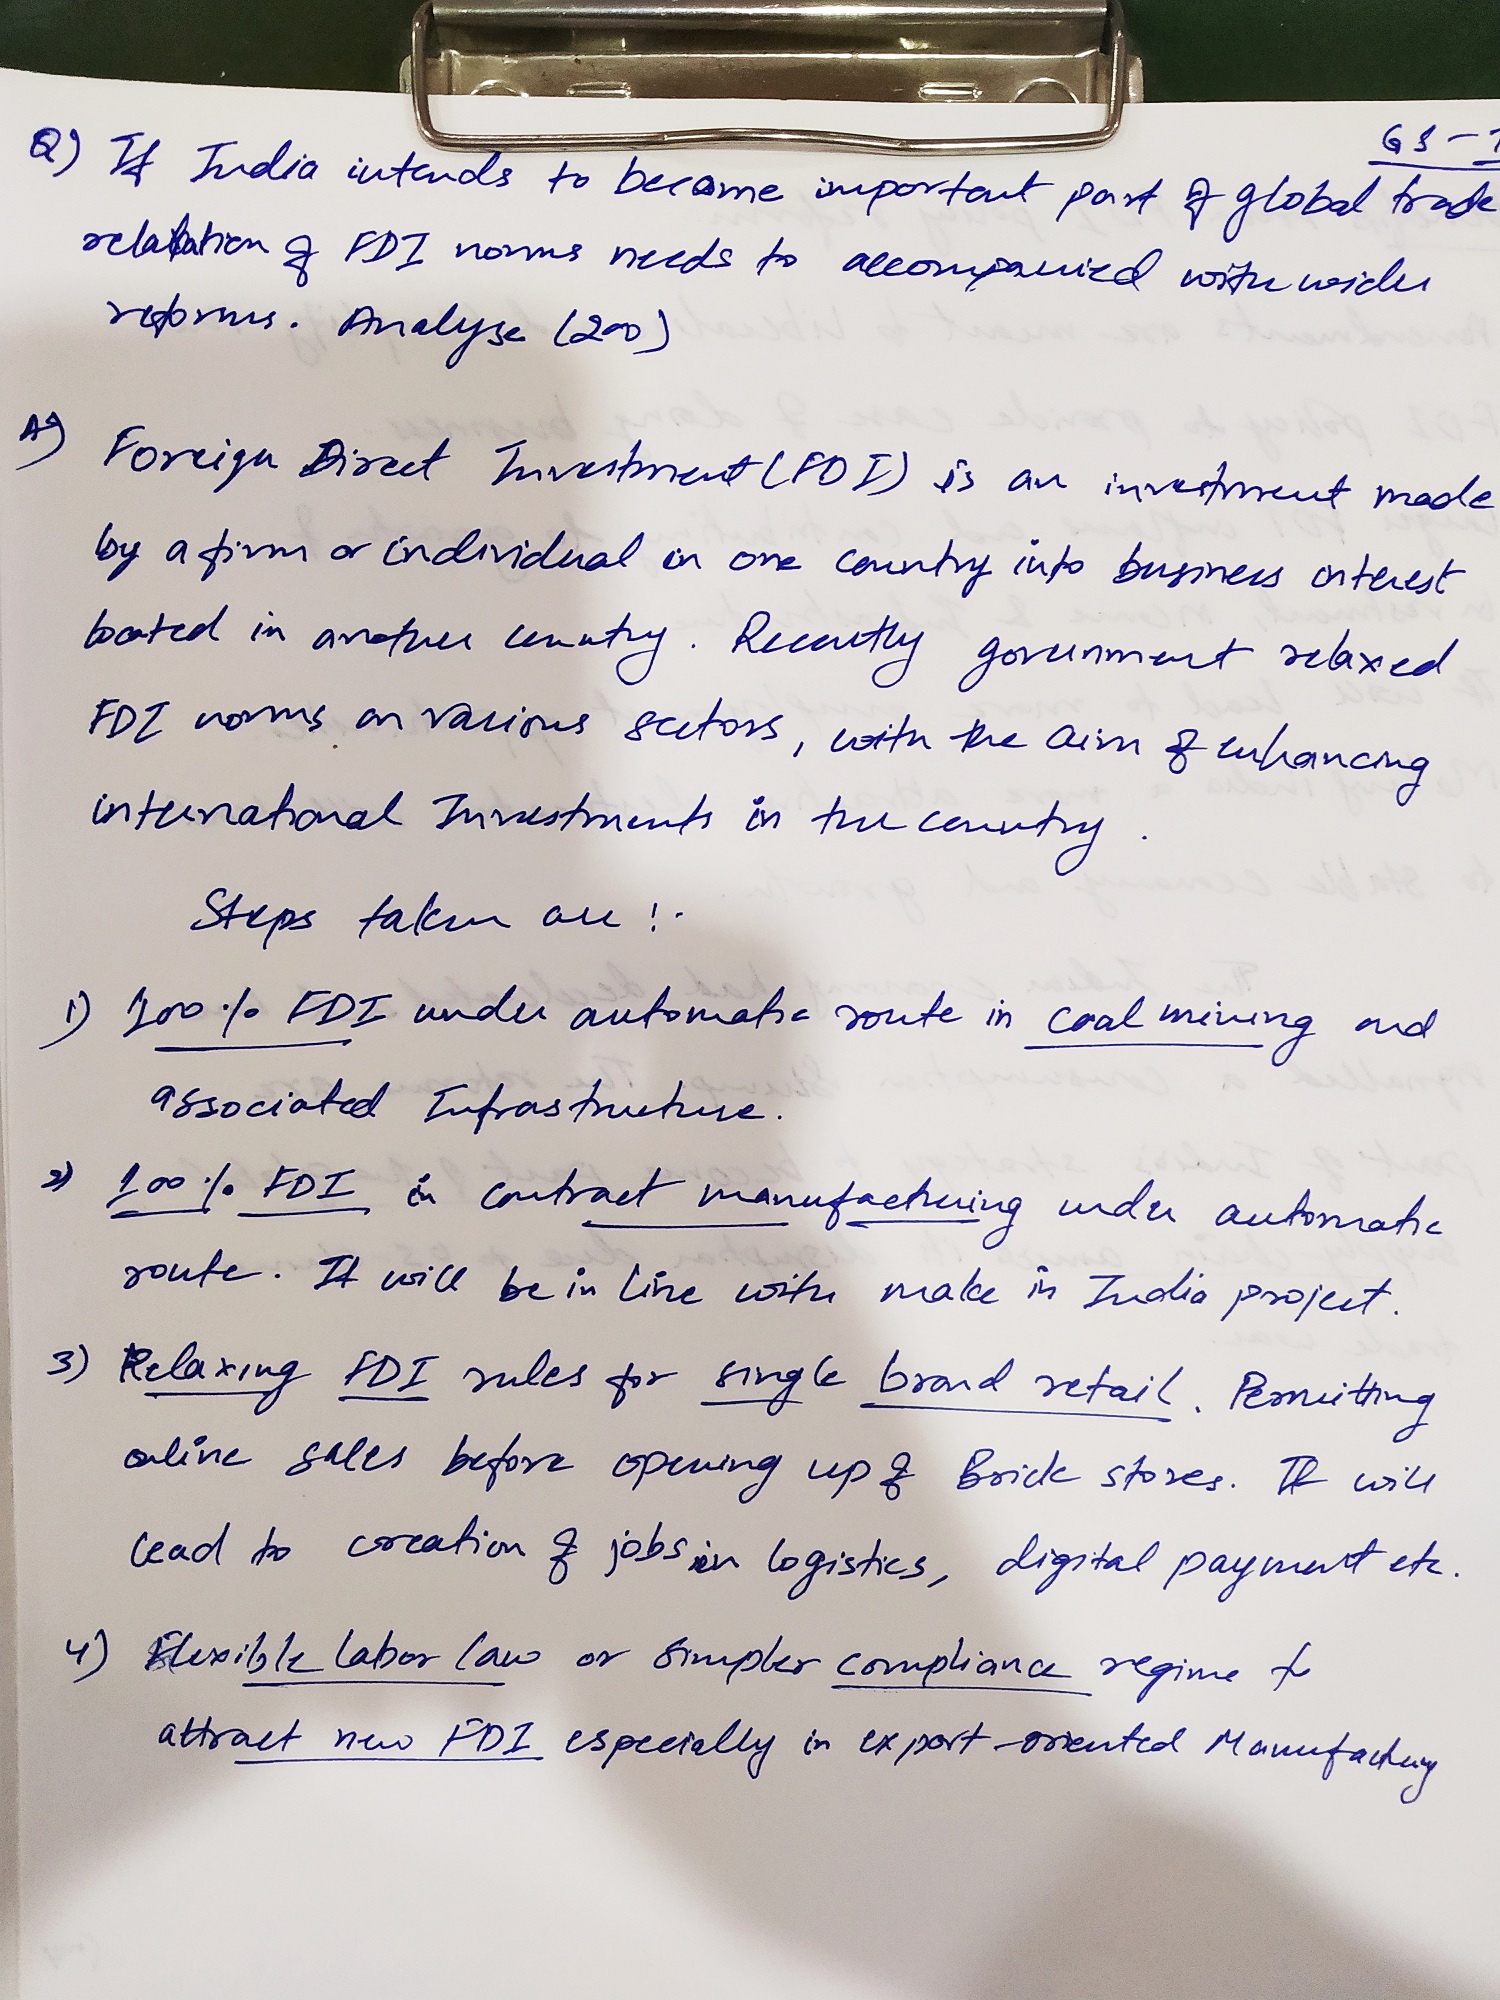 GS-
Q) If India intends to become important part of global trade
relaxation of FDI norms needs to accompanied with wider
reforms. Analyse (200)
A) Foreign Direct Investment (FDI) is an investment made
by a firm or individual in one country into business interest
located in another country. Recently government relaxed
FDI norms on various sectors, with the aim of enhancing
international Investments in the country.
Steps taken are :-
1) 100% FDI under automatic route in coal mining and
associated Infrastructure.
2) 100% FDI in contract manufacturing under automatic
route. It will be in line with make in India project.
3) Relaxing FDI rules for single brand retail. Permitting
online sales before opening up of Brick stores. It will
lead to creation of jobs in logistics, digital payment etc.
4) Flexible labor law or simpler compliance regime to
attract new FDI especially in export-oriented Manufacturing